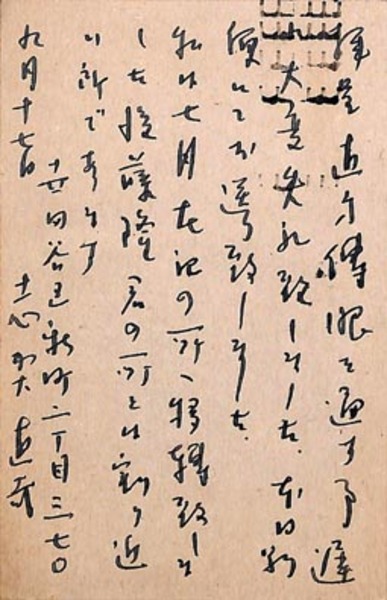 拝呈 直 を す事遅
れ大変失礼致しました。本日別
便にてお送り致しました。
私は七月左記の所へ移轉致しま
した 後藤隆君の所とは割り近
い所であります
世田谷区新町二丁目三七〇
九月十七日 志賀直哉